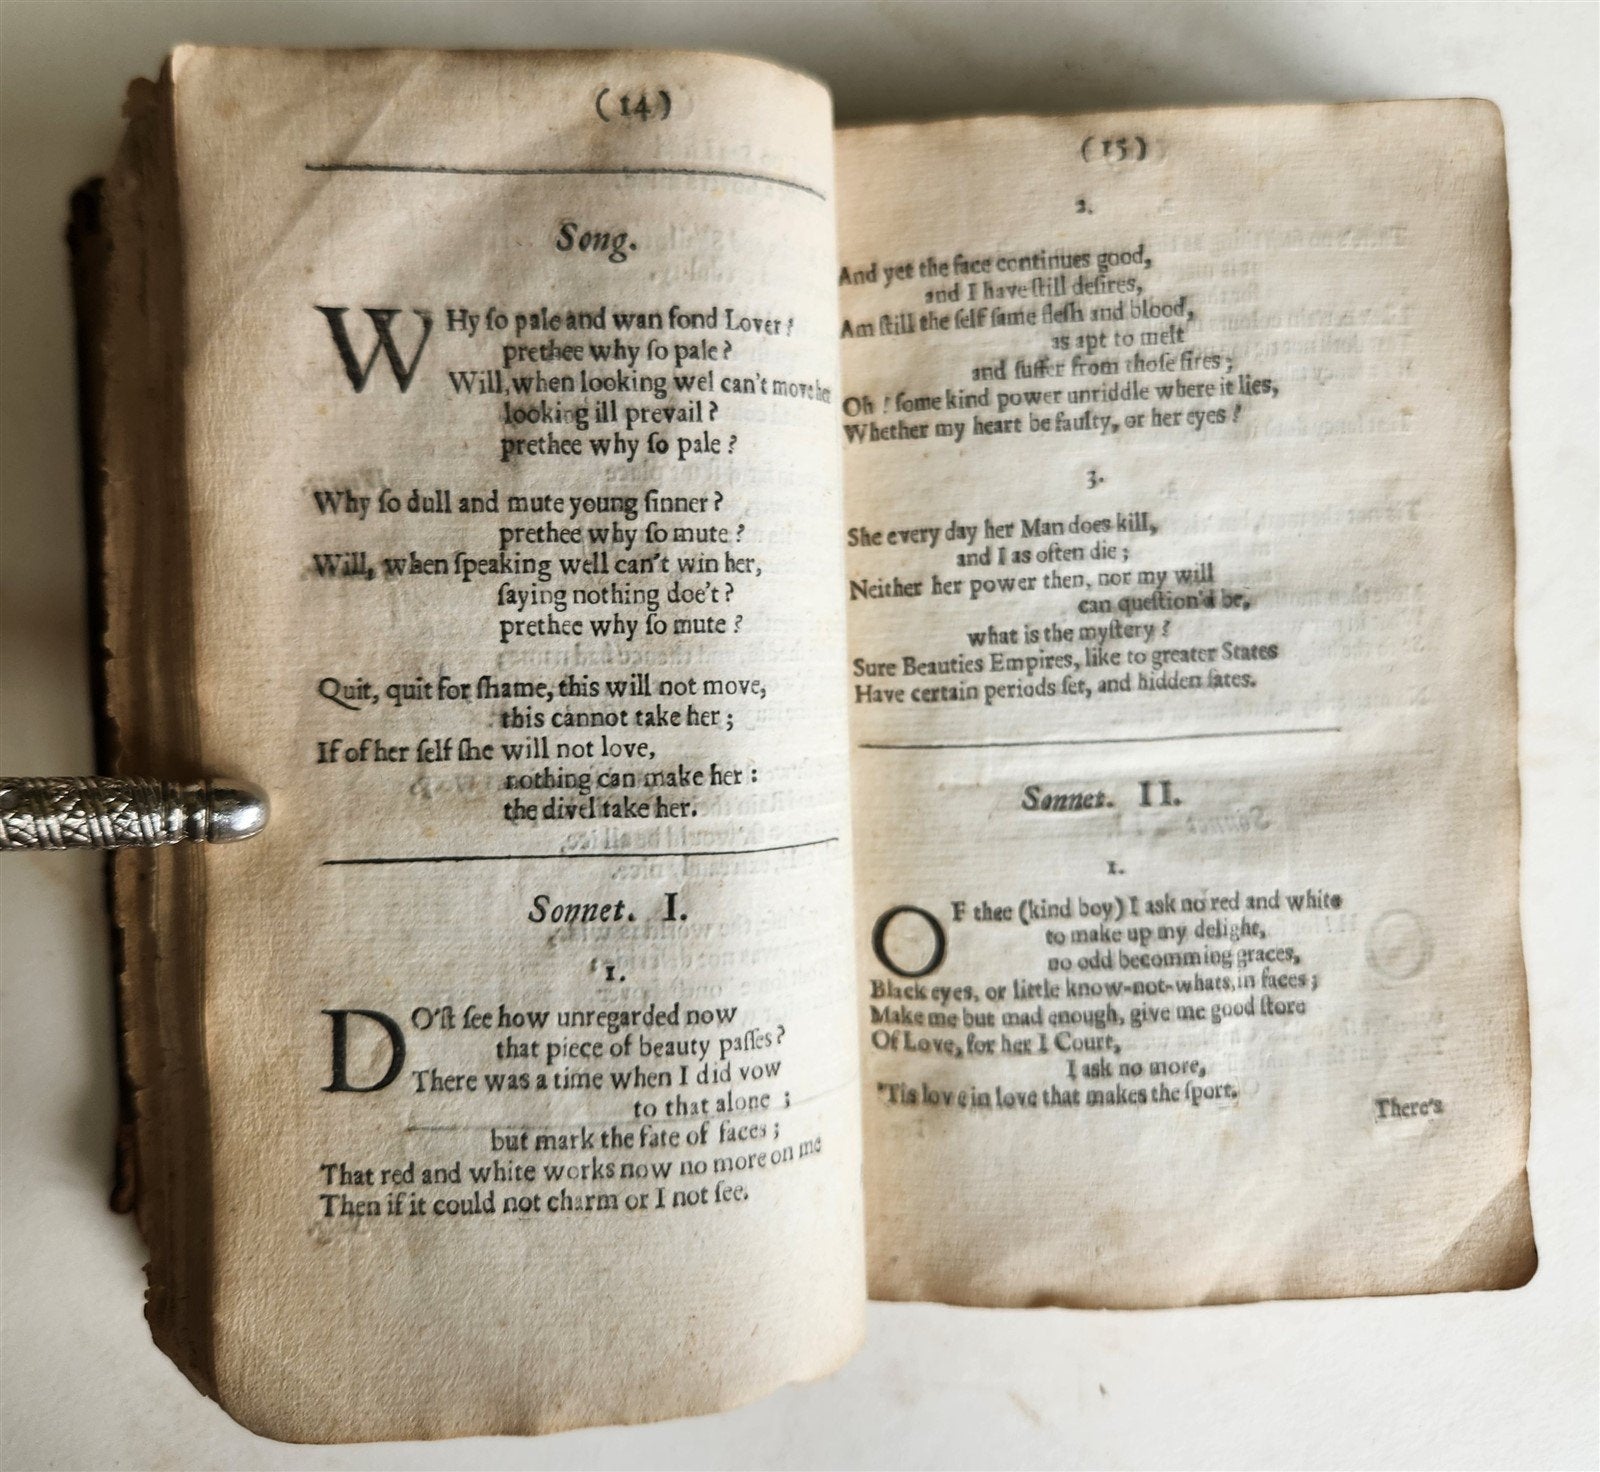 (14)
Song.
WHy ſo pale and wan fond Lover?
prethee why ſo pale?
Will, when looking wel can't move her
looking ill prevail?
prethee why ſo pale?
Why ſo dull and mute young ſinner?
prethee why ſo mute?
Will, when ſpeaking well can't win her,
ſaying nothing doe't?
prethee why ſo mute?
Quit, quit for ſhame, this will not move,
this cannot take her;
If of her ſelf ſhe will not love,
nothing can make her:
the divel take her.
Sonnet. I.
1.
DO'ſt ſee how unregarded now
that piece of beauty paſſes?
There was a time when I did vow
to that alone;
but mark the fate of faces;
That red and white works now no more on me
Then if it could not charm or I not ſee.
(15)
2.
And yet the face continues good,
and I have ſtill deſires,
Am ſtill the ſelf ſame fleſh and blood,
as apt to melt
and ſuffer from thoſe fires;
Oh! ſome kind power unriddle where it lies,
Whether my heart be faulty, or her eyes?
3.
She every day her Man does kill,
and I as often die;
Neither her power then, nor my will
can queſtion'd be,
what is the myſtery?
Sure Beauties Empires, like to greater States
Have certain periods ſet, and hidden fates.
Sonnet. II.
1.
OF thee (kind boy) I ask no red and white
to make up my delight,
no odd becomming graces,
Black eyes, or little know-not-whats, in faces;
Make me but mad enough, give me good ſtore
Of Love, for her I Court,
I ask no more,
'Tis love in love that makes the ſport.
There's